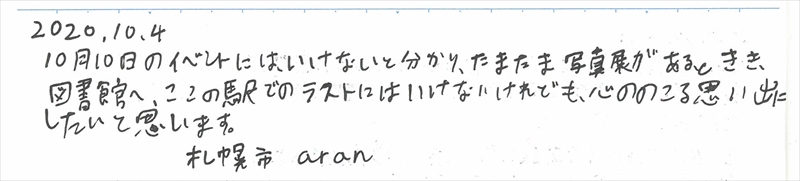 2020.10.4
10月10日のイベントには、いけないと分かり、たまたま写真展があるときき、
図書館へ、ここの駅でのラストにはいけないけれども、心ののこる思い出に
したいと思います。
札幌市 aran